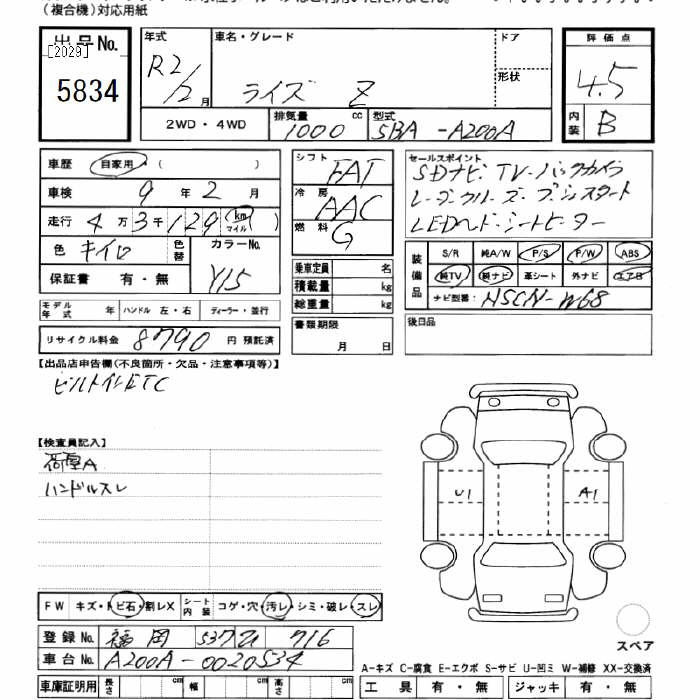 (複合機)対応用紙
出品No.
[2029]
5834
年式
R2/12月
車名・グレード
ライズ Z
ドア
形状
評価点
4.5
内装
B
2WD・4WD
排気量
1000cc
型式
5BA-A200A
車歴 自家用・( )
車検 9年2月
走行 4万3千129 km マイル ( )
色 キイロ
色替
カラーNo.
Y15
保証書 有・無
シフト FAT
冷房 AAC
燃料 G
セールスポイント
SDナビ・TV・バックカメラ
レーダークルーズ・プッシュスタート
LEDヘッド・シートヒーター
装備品
S/R 純A/W P/S P/W ABS
純TV 純ナビ 革シート 外ナビ エアB
ナビ型番: NSCN-W68
乗車定員 名
積載量 kg
総重量 kg
モデル年式 年 ハンドル 左・右 ディーラー・並行
リサイクル料金 8790円 預託済
書類期限
月 日
後日品
【出品店申告欄(不良箇所・欠品・注意事項等)】
ビルトインETC
【検査員記入】
荷室A
ハンドルスレ
U1
A1
FW キズ・ビ石・割レX シート内装 コゲ・穴・汚レ・シミ・破レ・スレ
登録No. 福岡 537 716
車台No. A200A-0020534
スペア
A-キズ C-腐食 E-エクボ S-サビ U-凹ミ W-補修 XX-交換済
車庫証明用 長さ cm 幅 cm 高さ cm
工具 有・無 ジャッキ 有・無